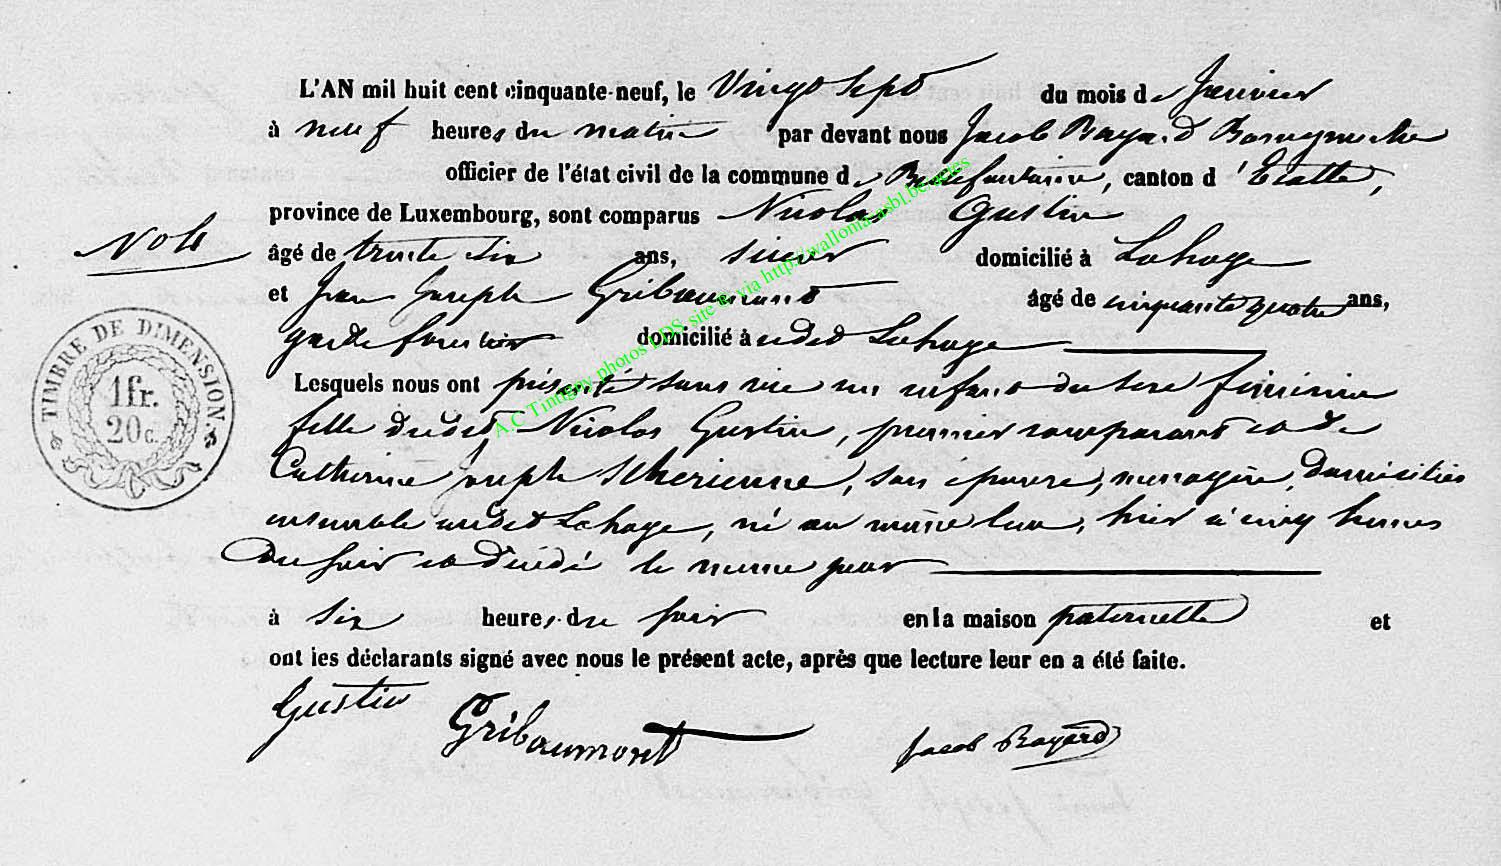 L'AN mil huit cent cinquante-neuf, le Vingt Sept du mois de Janvier
à neuf heures du matin par devant nous Jacob Bayard Bourgmestre
officier de l'état civil de la commune de Bellefontaine, canton d'Etalle,
province de Luxembourg, sont comparus Nicolas Gustin
âgé de trente six ans, domicilié à Lahage
et Jean Joseph Gribaumont âgé de cinquante quatre ans,
garde forestier domicilié à audit Lahage
Lesquels nous ont présenté sans vie un enfant du sexe féminin
fille dudit Nicolas Gustin, premier comparant et de
Catherine Joseph Scherienne, son épouse, menagère, domiciliés
ensemble audit Lahage, né au même lieu, hier à cinq heures
du soir et décédé le meme jour
à six heures du soir en la maison paternelle et
ont les déclarants signé avec nous le présent acte, après que lecture leur en a été faite.
Gustin Gribaumont Jacob Bayard
TIMBRE DE DIMENSION.
1 fr.
20 c.
A.C Tintigny photos LDS site @ via http://wallonia.asbl.be